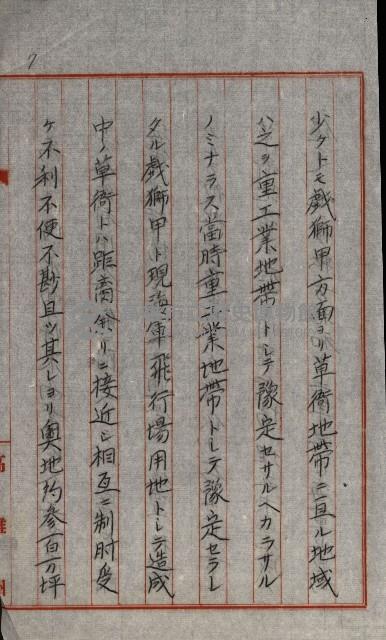 7
少クトモ戯獅甲方面ヨリ草衙地帯ニ亘ル地域
ハ之ヲ重工業地帯トシテ豫定セサルヘカラサル
ノミナラス當時重工業地帯トシテ豫定セラレ
タル戯獅甲ト現海軍飛行場用地トシテ造成
中ノ草衙トハ距離余リニ接近シ相互ニ制肘受
ケ不利不便不尠且ツ其レヨリ奥地約参百万坪
高雄州